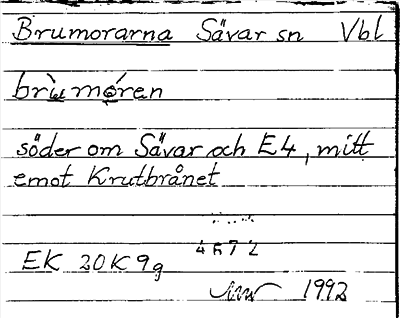 Brumorarna Sävar sn Vbl
brùmóran
söder om Sävar och E4, mitt
emot Krutbrånet
4672
EK 20K 9g
1992